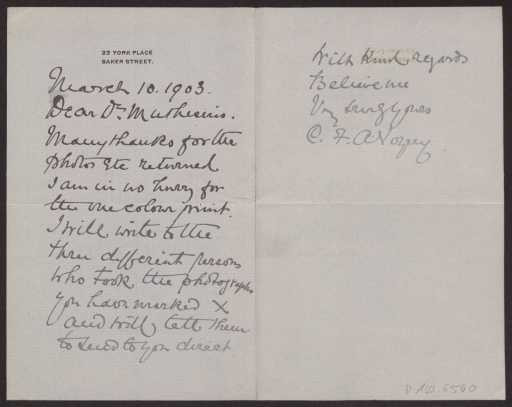 23 YORK PLACE
BAKER STREET.
March 10. 1903.
Dear Dr Muthesius.
Many thanks for the
photos Etc returned
I am in no hurry for
the one colour print.
I will write to the
three different persons
who took the photographs
you have marked X
and will tell them
to send to you direct
With Kind regards
Believe me
Very truly yours
C. F. A Voysey.